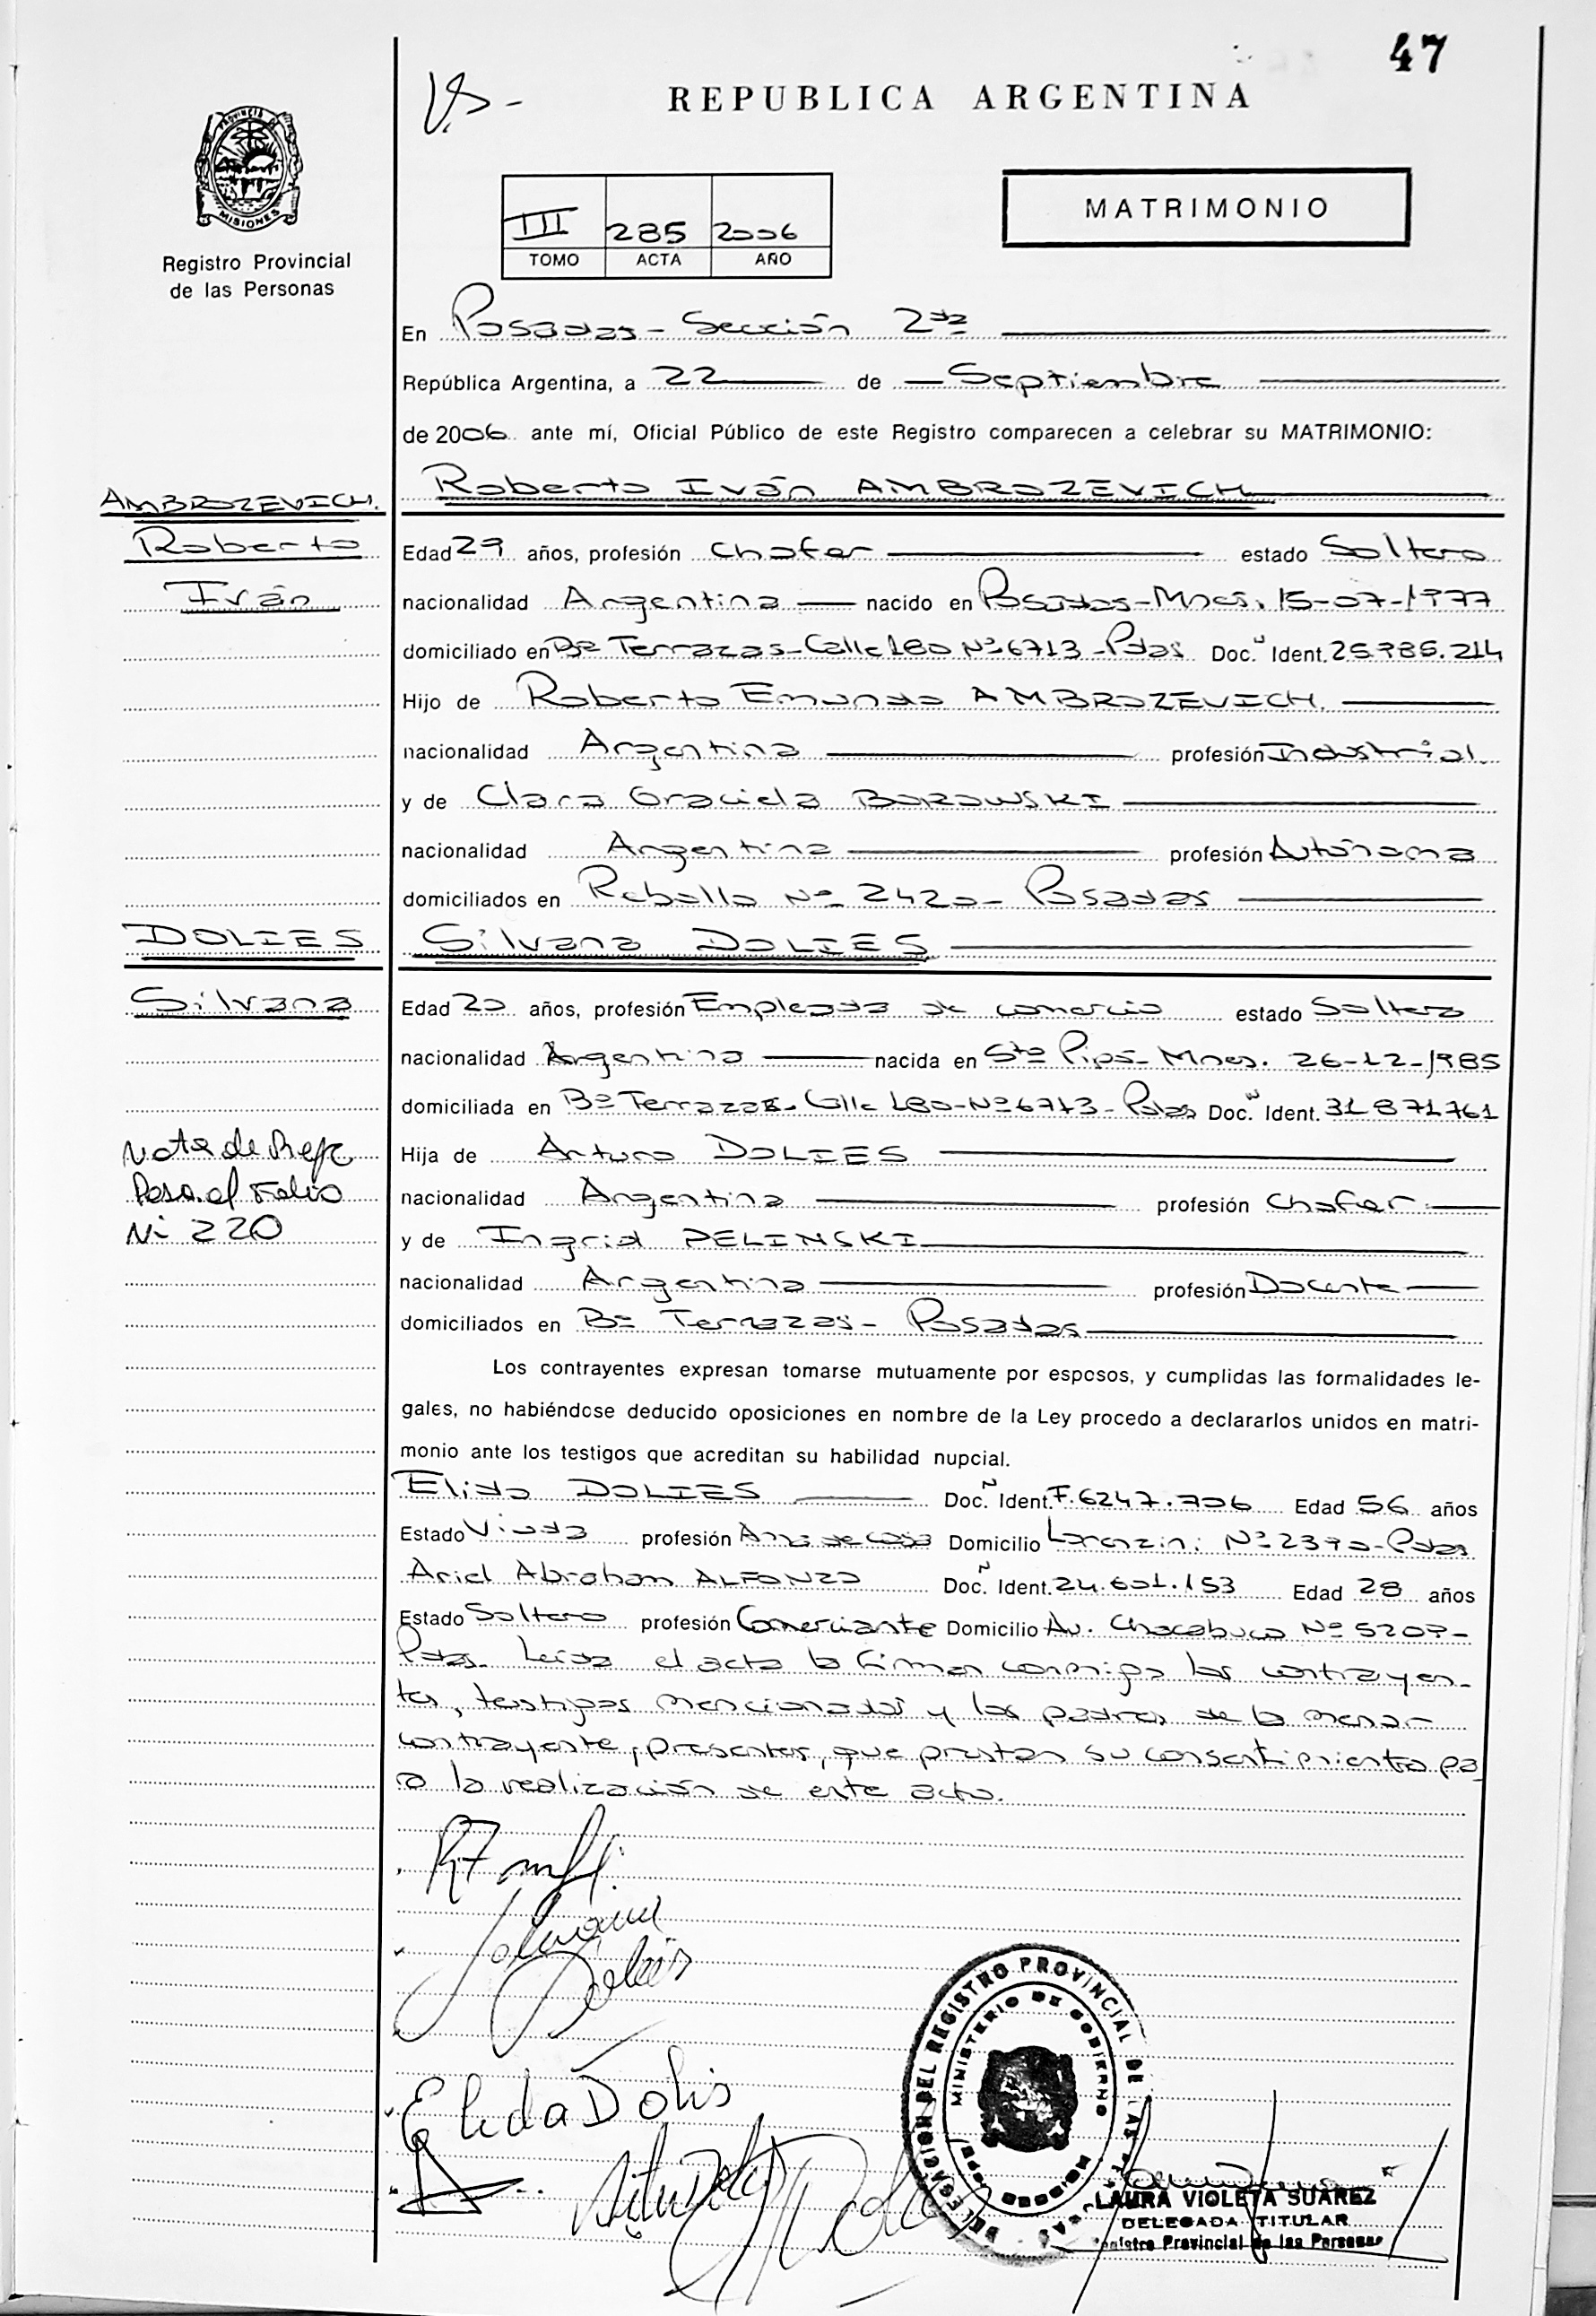 47
Vs-
REPUBLICA ARGENTINA
PROVINCIA DE
MISIONES
Registro Provincial
de las Personas
III 285 2006
TOMO ACTA AÑO
MATRIMONIO
En Posadas - Sección 2da
República Argentina, a 22 de Septiembre
de 2006 ante mí, Oficial Público de este Registro comparecen a celebrar su MATRIMONIO:
AMBROZEVICH.
Roberto Iván AMBROZEVICH
Roberto
Iván
Edad 29 años, profesión Chofer estado Soltero
nacionalidad Argentina nacido en Posadas-Mnes. 15-07-1977
domiciliado en Bº Terrazas-Calle 180 Nº 6713-Pdas Doc. N Ident. 25.985.214
Hijo de Roberto Emundo AMBROZEVICH.
nacionalidad Argentina profesión Industrial
y de Clara Graciela BOROWSKI
nacionalidad Argentina profesión Autónoma
domiciliados en Rebollo Nº 2420- Posadas
DOLIES
Silvana DOLIES
Silvana
Edad 20 años, profesión Empleada de comercio estado Soltera
nacionalidad Argentina nacida en Sto Pipó-Mnes. 26-12-1985
domiciliada en Bº Terrazas-Calle 180-Nº 6713-Pdas Doc. N Ident. 31871761
Hija de Arturo DOLIES
nacionalidad Argentina profesión Chofer
y de Ingrid PELINSKI
nacionalidad Argentina profesión Docente
domiciliados en Bº Terrazas- Posadas
Nota de Refe
Pasa al Folio
Nº 220
Los contrayentes expresan tomarse mutuamente por esposos, y cumplidas las formalidades le-
gales, no habiéndose deducido oposiciones en nombre de la Ley procedo a declararlos unidos en matri-
monio ante los testigos que acreditan su habilidad nupcial.
Elida DOLIES Doc. N Ident. F.6247.706 Edad 56 años
Estado Viuda profesión Ama de casa Domicilio Lorenzini Nº 2390-Pdas
Ariel Abraham ALFONZO Doc. N Ident. 24.601.153 Edad 28 años
Estado Soltero profesión Comerciante Domicilio Av. Chacabuco Nº 5207-
Pdas. Leída el acta la firman conmigo los contrayen-
tes, testigos mencionados y los padres de la menor
contrayente, presentes, que prestan su consentimiento pa
a la realización de este acto.
Silvana
Dolies
Elida Dolis
DELEGACION DEL REGISTRO PROVINCIAL DE LAS
MINISTERIO DE GOBIERNO
LAURA VIOLETA SUAREZ
DELEGADA TITULAR
Registro Provincial de las Personas